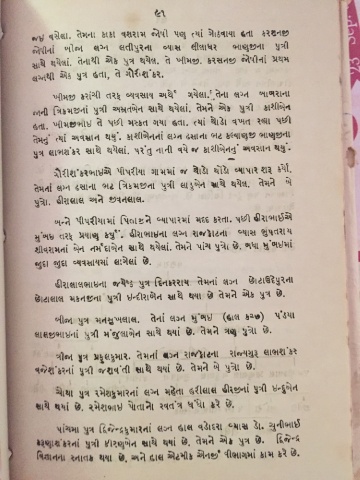 ૬૧
જઈ વસેલા. તેમના કાકા વશરામ જોષી પણ ત્યાં ગોઠવાયા હતા કરસનજી
જોષીનાં બીજા લગ્ન લતીપુરના વ્યાસ લીલાધર ભાણજીના પુત્રી
સાથે થયેલાં. તેનાથી એક પુત્ર થયેલ. તે ખીમજી. કરસનજી જોષીનાં પ્રથમ
લગ્નથી એક પુત્ર હતા, તે ગૌરીશંકર.
ખીમજી કરાંચી તરફ વ્યવસાય અર્થે ગયેલા. તેના લગ્ન બાલંભાના
ત્રિકમજીનાં પુત્રી અમૃતબેન સાથે થયેલાં. તેમને એક પુત્રી કાશીબેન
હતા. ખીમજીભાઈ તે પછી મસ્કત ગયા હતા. ત્યાં થોડો વખત રહ્યા પછી
તેમનું ત્યાં અવસાન થયું. કાશીબેનનાં લગ્ન હસાના ભટ કલ્યાણજી ભાણજીના
પુત્ર લાભશંકર સાથે થયેલાં. પરંતુ નાની વયે જ કાશીબેનનું અવસાન થયું.
ગૌરીશંકરભાઈએ પીપરીયા ગામમાં જ થોડો થોડો વ્યાપાર શરૂ કર્યો.
તેમનાં લગ્ન હસાના ભટ ત્રિકમજીના પુત્રી લાડુબેન સાથે થયેલ. તેમને બે
પુત્રો. હીરાલાલ અને જીવનલાલ.
બન્ને પીપરીયામાં પિતાજીને વ્યાપારમાં મદદ કરતા. પછી હીરાભાઈએ
મુંબઈ તરફ પ્રયાણ કર્યું. હીરાભાઈના લગ્ન રાજકોટના વ્યાસ ભુપતરાય
શીવરામનાં બેન નર્મદાબેન સાથે થયેલાં. તેમને પાંચ પુત્રો છે. બધા મુંબઈમાં
જુદા જુદા વ્યવસાયમાં લાગેલાં છે.
હીરાલાલભાઇના જ્યેષ્ઠ પુત્ર દિનકરરાય તેમનાં લગ્ન છોટાઉદેપુરના
છોટાલાલ મકનજીના પુત્રી ઇન્દીરાબેન સાથે થયા છે તેમને એક પુત્ર છે.
બીજા પુત્ર મનસુખલાલ. તેનાં લગ્ન મુંબઈ (હાલ કચ્છ) પંડયા
લાલજીભાઇનાં પુત્રી મંજુલાબેન સાથે થયાં છે. તેમને ત્રણ પુત્રો છે.
ત્રીજા પુત્ર પ્રફુલકુમાર. તેમનાં લગ્ન રાજકોટના રાજ્યગુરૂ લાભશંકર
વજેશંકરનાં પુત્રી જશવંતી સાથે થયાં છે. તેમને બે પુત્રો છે.
ચોથા પુત્ર રમેશકુમારનાં લગ્ન મહેતા હરીલાલ હીરજીનાં પુત્રી ઇન્દુબેન
સાથે થયાં છે. રમેશભાઇ પોતાનો સ્વતંત્ર ધંધો કરે છે.
પાંચમા પુત્ર દિજેન્દ્રકુમારનાં લગ્ન હાલ વડોદરા વ્યાસ ડો. ચુનીભાઈ
કરૂણાશંકરનાં પુત્રી કીરણબેન સાથે થયાં છે, તેમને એક પુત્ર છે. દિજેન્દ્ર
વિજ્ઞાનના સ્નાતક થયા છે, અને હાલ એટમીક એનર્જી વીભાગમાં કામ કરે છે.